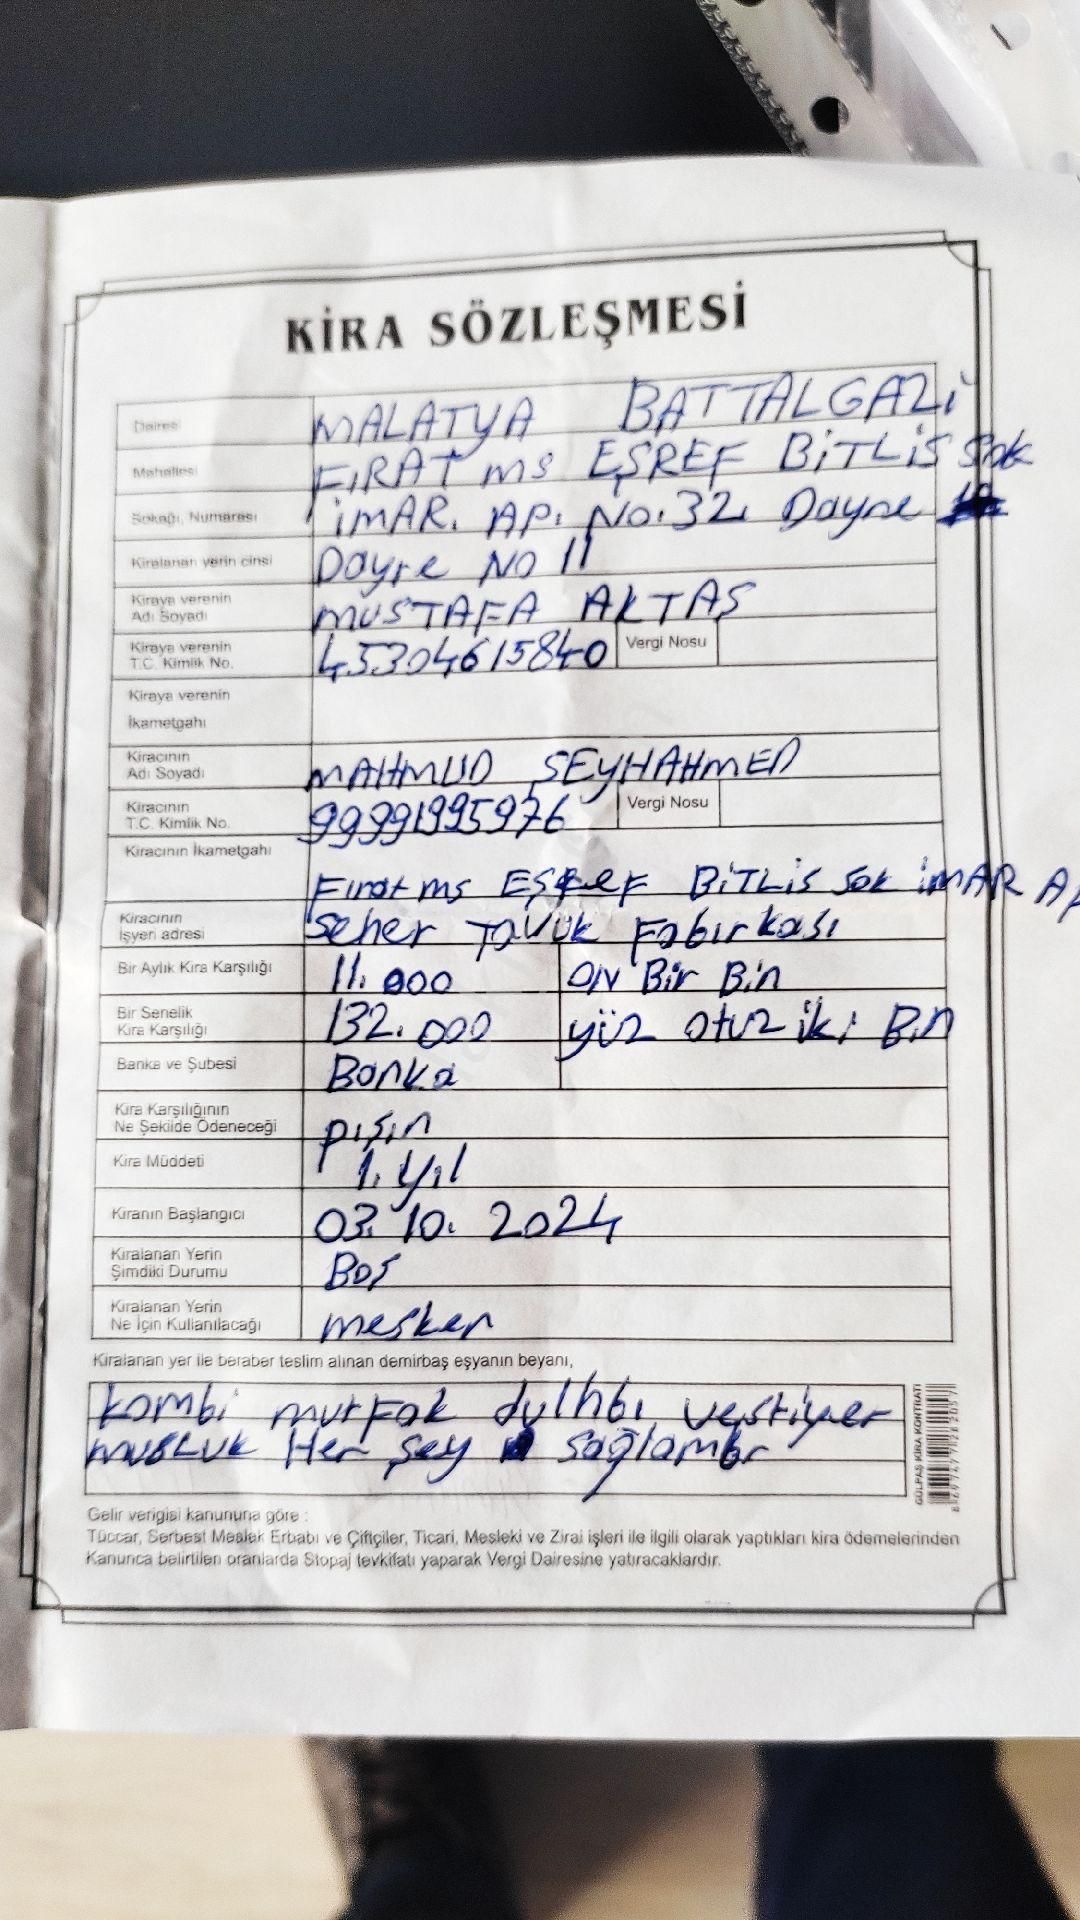 KİRA SÖZLEŞMESİ
Dairesi MALATYA BATTALGAZİ
Mahallesi FIRAT ms EŞREF BİTLİS Sok
Sokağı, Numarası İMAR. AP. No.32. Dayre
Kiralanan yerin cinsi Dayre No 11
Kiraya verenin
Adı Soyadı MUSTAFA AKTAS
Kiraya verenin
T.C. Kimlik No. 45304615840 Vergi Nosu
Kiraya verenin
İkametgahı
Kiracının
Adı Soyadı MAHMUD SEYHAHMED
Kiracının
T.C. Kimlik No. 99991995976 Vergi Nosu
Kiracının İkametgahı
Fırat ms EŞREF BİTLİS Sok İMAR AP
Kiracının
İşyeri adresi Seher TAVUK Fabırkası
Bir Aylık Kira Karşılığı 11.000 ON Bir Bin
Bir Senelik
Kira Karşılığı 132.000 yüz otuz iki Bin
Banka ve Şubesi Banka
Kira Karşılığının
Ne Şekilde Ödeneceği pişin
Kira Müddeti 1. yıl
Kiranın Başlangıcı 03.10.2024
Kiralanan Yerin
Şimdiki Durumu Boş
Kiralanan Yerin
Ne İçin Kullanılacağı mesken
Kiralanan yer ile beraber teslim alınan demirbaş eşyanın beyanı,
kombi mutfak vestiyer
musluk Her şey sağlamdır
GÜLPAŞ KİRA KONTRATI
Gelir verigisi kanununa göre :
Tüccar, Serbest Meslek Erbabı ve Çiftçiler, Ticari, Mesleki ve Zirai işleri ile ilgili olarak yaptıkları kira ödemelerinden
Kanunca belirtilen oranlarda Stopaj tevkifatı yaparak Vergi Dairesine yatıracaklardır.